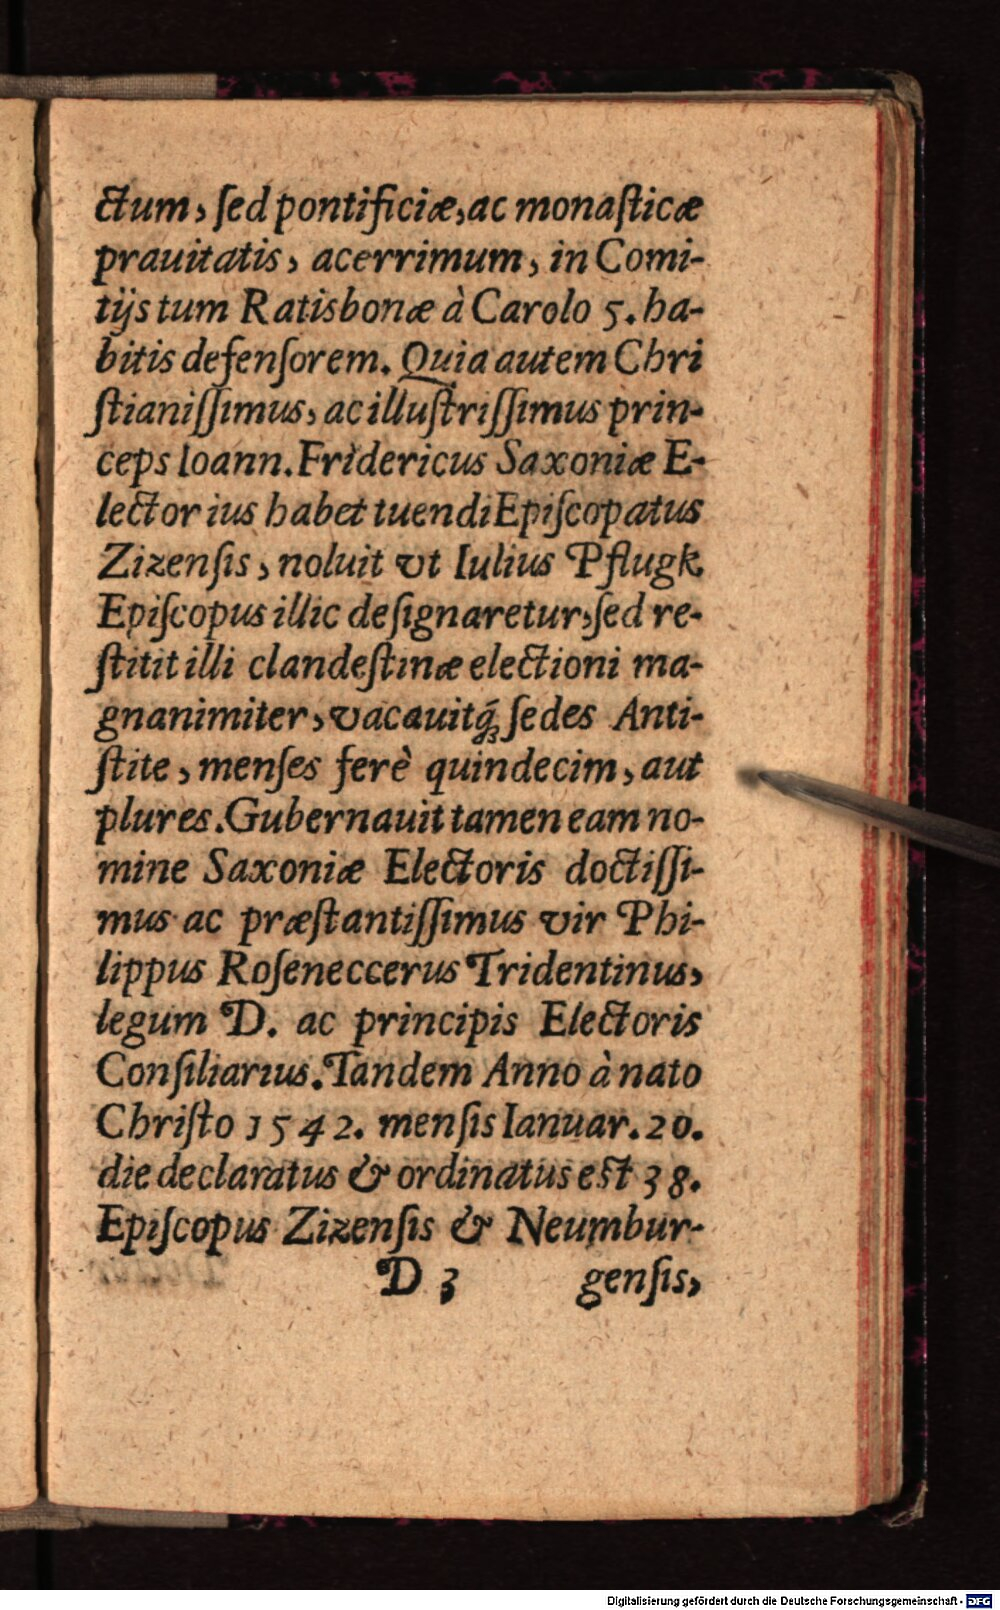 ctum, ſed pontificiæ, ac monaſticæ
prauitatis, acerrimum, in Comi-
tijs tum Ratisbonæ à Carolo 5. ha-
bitis defenſorem. Quia autem Chri
ſtianiſſimus, ac illuſtriſſimus prin-
ceps Ioann. Fridericus Saxoniæ E-
lector ius habet tuendi Epiſcopatus
Zizenſis, noluit vt Iulius Pflugk
Epiſcopus illic deſignaretur, ſed re-
ſtitit illi clandeſtinæ electioni ma-
gnanimiter, vacauitq́ꝫ ſedes Anti-
ſtite, menſes ferè quindecim, aut
plures. Gubernauit tamen eam no-
mine Saxoniæ Electoris doctiſſi-
mus ac præſtantiſſimus vir Phi-
lippus Roſeneccerus Tridentinus,
legum D. ac principis Electoris
Conſiliarius. Tandem Anno à nato
Chriſto 1542. menſis Ianuar. 20.
die declaratus & ordinatus eſt 38.
Epiſcopus Zizenſis & Neumbur-
D 3 genſis,
Digitalisierung gefördert durch die Deutsche Forschungsgemeinschaft - DFG